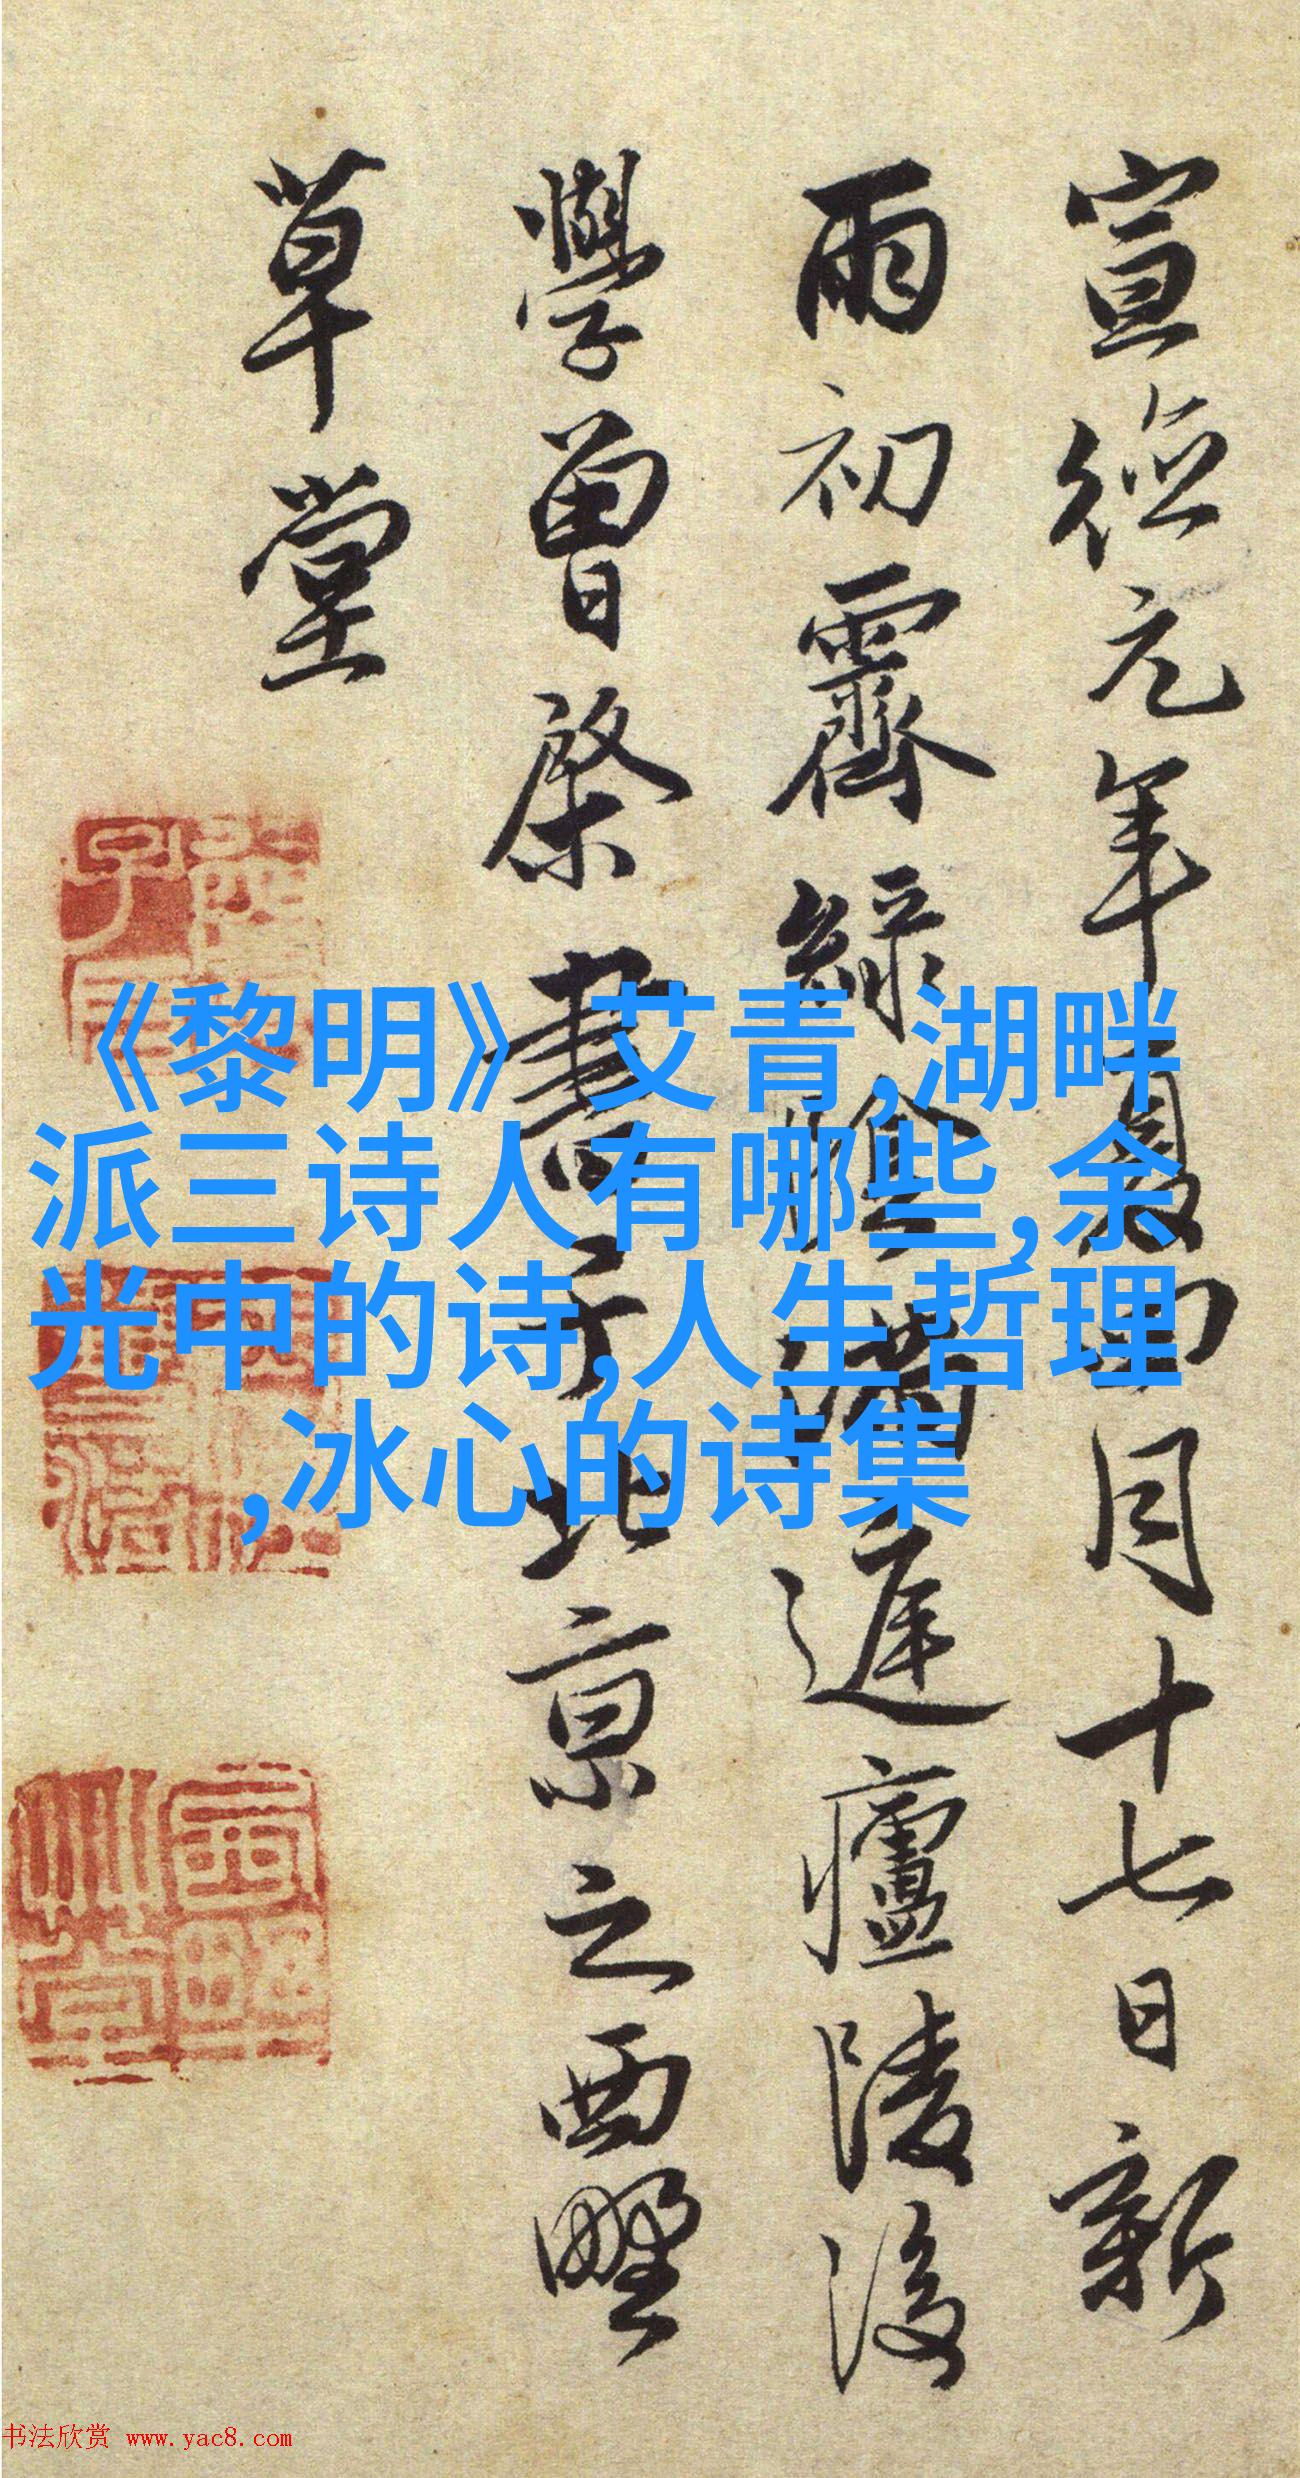 宣德元年夏四月十七日新
雨初霽綠陰滿
遲廬陵後
學曾棨書于北京之西野
草堂
《黎明》艾青,湖畔
派三诗人有哪些,余
光中的诗,人生哲理
,冰心的诗集
书法欣赏 www.yac8.com